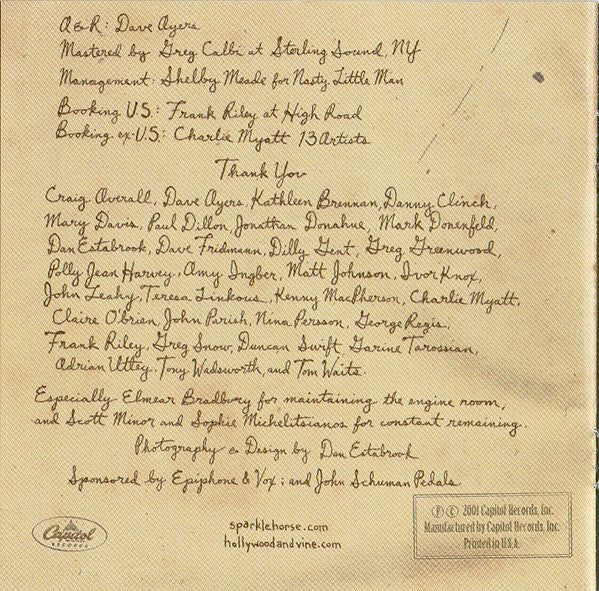 A&R: Dave Ayers
Mastered by Greg Calbi at Sterling Sound, NY
Management: Shelby Meade for Nasty Little Man
Booking U.S.: Frank Riley at High Road
Booking ex-U.S.: Charlie Myatt 13 Artists
Thank You
Craig Overall, Dave Ayers, Kathleen Brennan, Danny Clinch,
Mary Davis, Paul Dillon, Jonathan Donahue, Mark Donenfeld,
Dan Estabrook, Dave Fridmann, Dilly Gent, Greg Greenwood,
Polly Jean Harvey, Amy Ingber, Matt Johnson, Ivor Knox,
John Leahy, Teresa Linkous, Kenny MacPherson, Charlie Myatt,
Claire O'brien, John Parish, Nina Persson, George Regis,
Frank Riley, Greg Snow, Duncan Swift, Garine Tarossian,
Adrian Uttley, Tony Wadsworth, and Tom Waits.
Especially Elmear Bradbury for maintaining the engine room,
and Scott Minor and Sophie Michelitsianos for constant remaining.
Photography & Design by Dan Estabrook
Sponsored by Epiphone & Vox; and John Schuman Pedals
Capitol
RECORDS
sparklehorse.com
hollywoodandvine.com
Ⓟ © 2001 Capitol Records, Inc.
Manufactured by Capitol Records, Inc.
Printed in U.S.A.